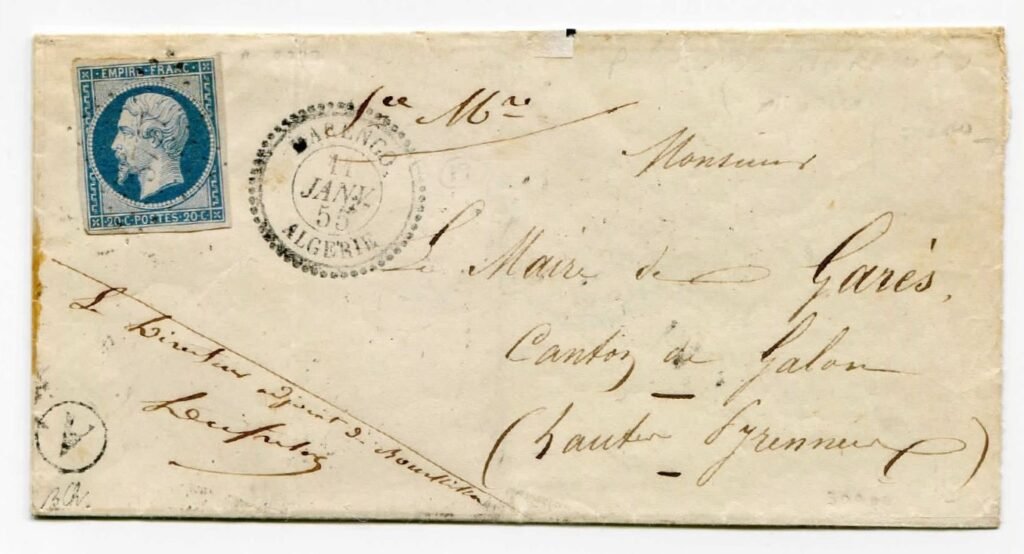 EMPIRE FRANC
20·C·POSTES·20·C
MARENGO
11
JANV.
55
ALGERIE
Sce Mre
Monsieur
Le Maire de Garès,
Canton de Galon
(hautes Pyrennées)
Le Directeur adjoint de
A